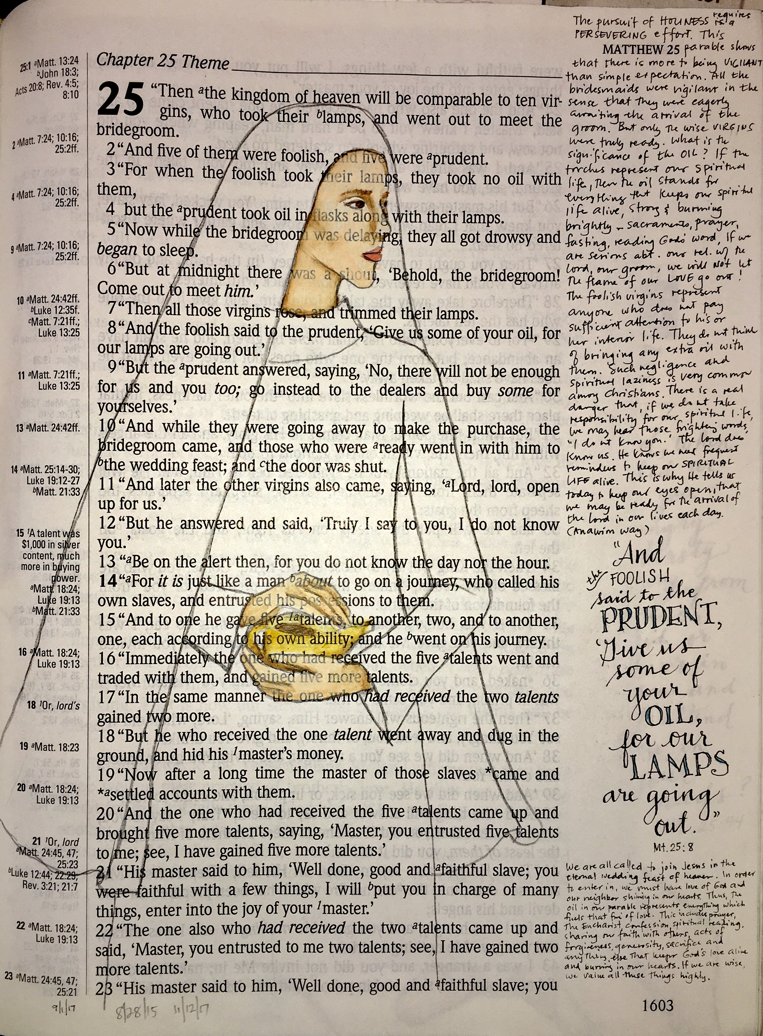 The pursuit of HOLINESS requires is a
PERSEVERING effort. This
MATTHEW 25 parable shows
that there is more to being VIGILANT
than simple expectation. All the
bridesmaids were vigilant in the
sense that they were eagerly
awaiting the arrival of the
groom. But only the wise VIRGINS
were truly ready. What is the
significance of the OIL? If the
torches represent our spiritual
life, then the oil stands for
everything that keeps our spiritual
life alive, strong & burning
brightly - Sacraments, prayer,
fasting, reading God's word, If we
are serious abt. our rel. w/ the
Lord, our groom, we will not let
the flame of our LOVE go out!
The foolish virgins represent
anyone who does not pay
sufficient attention to his or
her interior life. They do not think
of bringing any extra oil with
them. Such negligence and
spiritual laziness is very common
among Christians. There is a real
danger that, if we do not take
responsibility for our spiritual life,
we may hear those frightening words,
"I do not know you." The Lord does
know us. He knows we need frequent
reminders to keep our SPIRITUAL
LIFE alive. This is why He tells us
today to keep our eyes open, that
we may be ready for the arrival of
the Lord in our lives each day.
(Anawim Way)
"And
the FOOLISH
said to the
PRUDENT,
'Give us
some of
your
OIL,
for our
LAMPS
are going
out.'"
Mt. 25:8
We are all called to join Jesus in the
eternal wedding feast of heaven. In order
to enter in, we must have love of God and
our neighbor shining in our hearts. Thus, the
oil in our parable represents everything which
fuels that fire of love. This includes prayer,
the Eucharist, confession, spiritual reading,
sharing our faith with others, acts of
forgiveness, generosity, sacrifice and
anything else that keeps God's love alive
and burning in our hearts. If we are wise,
we value all these things highly.
Chapter 25 Theme
25 "Then athe kingdom of heaven will be comparable to ten vir-
gins, who took their blamps, and went out to meet the
bridegroom.
2 "And five of them were foolish, and five were aprudent.
3 "For when the foolish took their lamps, they took no oil with
them,
4 but the aprudent took oil in flasks along with their lamps.
5 "Now while the bridegroom was delaying, they all got drowsy and
began to sleep.
6 "But at midnight there was a shout, 'Behold, the bridegroom!
Come out to meet him.'
7 "Then all those virgins rose, and trimmed their lamps.
8 "And the foolish said to the prudent, 'Give us some of your oil, for
our lamps are going out.'
9 "But the aprudent answered, saying, 'No, there will not be enough
for us and you too; go instead to the dealers and buy some for
yourselves.'
10 "And while they were going away to make the purchase, the
bridegroom came, and those who were aready went in with him to
bthe wedding feast; and cthe door was shut.
11 "And later the other virgins also came, saying, 'aLord, lord, open
up for us.'
12 "But he answered and said, 'Truly I say to you, I do not know
you.'
13 "aBe on the alert then, for you do not know the day nor the hour.
14 "aFor it is just like a man babout to go on a journey, who called his
own slaves, and entrusted his possessions to them.
15 "And to one he gave five 1atalents, to another, two, and to another,
one, each according to his own ability; and he bwent on his journey.
16 "Immediately the one who had received the five atalents went and
traded with them, and gained five more talents.
17 "In the same manner the one who had received the two talents
gained two more.
18 "But he who received the one talent went away and dug in the
ground, and hid his 1master's money.
19 "Now after a long time the master of those slaves *came and
*asettled accounts with them.
20 "And the one who had received the five atalents came up and
brought five more talents, saying, 'Master, you entrusted five talents
to me; see, I have gained five more talents.'
21 "His master said to him, 'Well done, good and afaithful slave; you
were faithful with a few things, I will bput you in charge of many
things, enter into the joy of your 1master.'
22 "The one also who had received the two atalents came up and
said, 'Master, you entrusted to me two talents; see, I have gained two
more talents.'
23 "His master said to him, 'Well done, good and afaithful slave; you
25:1 aMatt. 13:24
bJohn 18:3;
Acts 20:8; Rev. 4:5;
8:10
2 aMatt. 7:24; 10:16;
25:2ff.
4 aMatt. 7:24; 10:16;
25:2ff.
9 aMatt. 7:24; 10:16;
25:2ff.
10 aMatt. 24:42ff.
bLuke 12:35f.
cMatt. 7:21ff.;
Luke 13:25
11 aMatt. 7:21ff.;
Luke 13:25
13 aMatt. 24:42ff.
14 aMatt. 25:14-30;
Luke 19:12-27
bMatt. 21:33
15 1A talent was
$1,000 in silver
content, much
more in buying
power.
aMatt. 18:24;
Luke 19:13
bMatt. 21:33
16 aMatt. 18:24;
Luke 19:13
18 1Or, lord's
19 aMatt. 18:23
20 aMatt. 18:24;
Luke 19:13
21 1Or, lord
aMatt. 24:45, 47;
25:23
bLuke 12:44; 22:29;
Rev. 3:21; 21:7
22 aMatt. 18:24;
Luke 19:13
23 aMatt. 24:45, 47;
25:21
9/1/17 8/28/15 11/12/17
1603